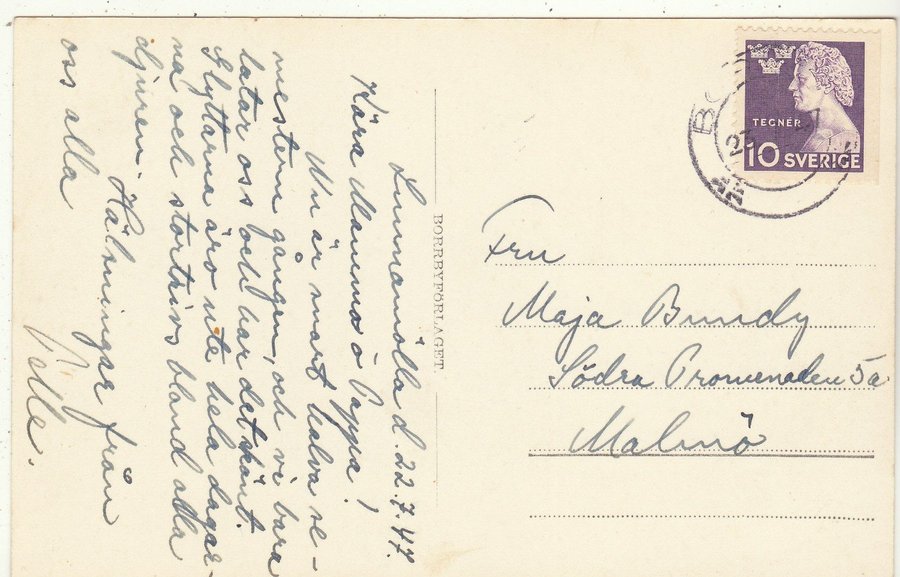 d. 22.7.47.
Kära Mamma o Pappa!
Nu är snart halva se-
mestern gången, och vi bara
latar oss och har det skönt.
Glyttarna äro ute hela dagar-
na och stortrivs bland alla
djuren. Hälsningar från
oss alla
Pelle.
BORRBYFÖRLAGET.
TEGNÉR
10 SVERIGE
23
Fru
Maja Bundy
Södra Promenaden 5a
Malmö